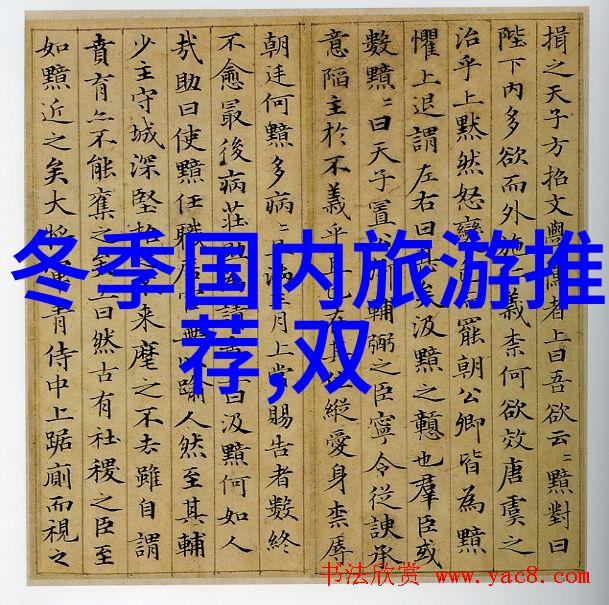 損之天子方招文學者上曰吾欲云〻黯對曰
陛下內多欲而外施義柰何欲效唐虞之
治乎上黙然怒變罷朝公卿皆為黯
懼上退謂左右曰甚矣汲黯之戇也羣臣或
數黯〻曰天子置公輔弼之臣寧令從諛承
意陷主於不義乎且已在其縱愛身柰辱
朝廷何黯多病〻且滿三月上常賜告者數終
不愈最後病莊助為請曰汲黯何如人
哉助曰使黯任職居官無以踰人然至其輔
少主守城深堅招來麾之不去雖自謂
賁育亦不能奪之矣上曰然古有社稷之臣至
如黯近之矣大將軍青侍中上踞廁而視之
冬季国内旅游推
荐,双
书法欣赏 www.yac8.com